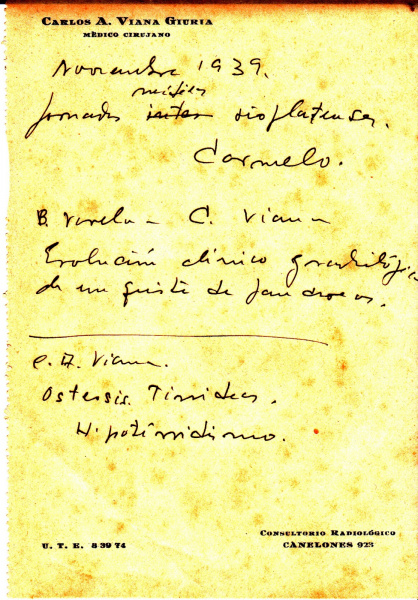 CARLOS A. VIANA GIURIA
MÉDICO CIRUJANO
Noviembre 1939.
médicas
Jornadas rioplatenses.
Carmelo.
B. Varela - C. Viana
Evolución clínico y radiológica
de un quiste de
C. A. Viana.
Osteosis Tiroidea.
Hipotiroidismo.
CONSULTORIO RADIOLÓGICO
U. T. E. 8 39 74
CANELONES 923